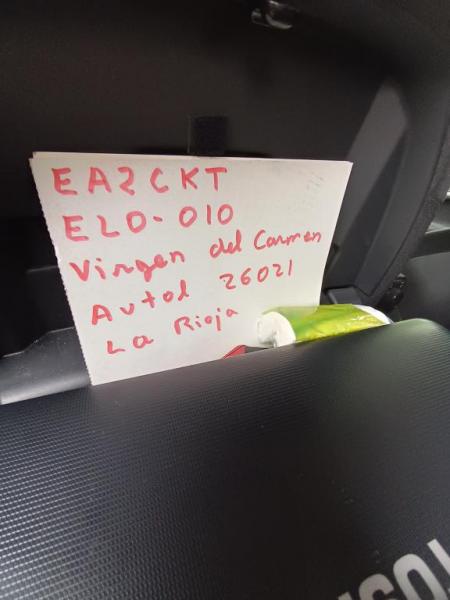 EA2CKT
ELO-010
Virgen del Carmen
Autol 26021
La Rioja